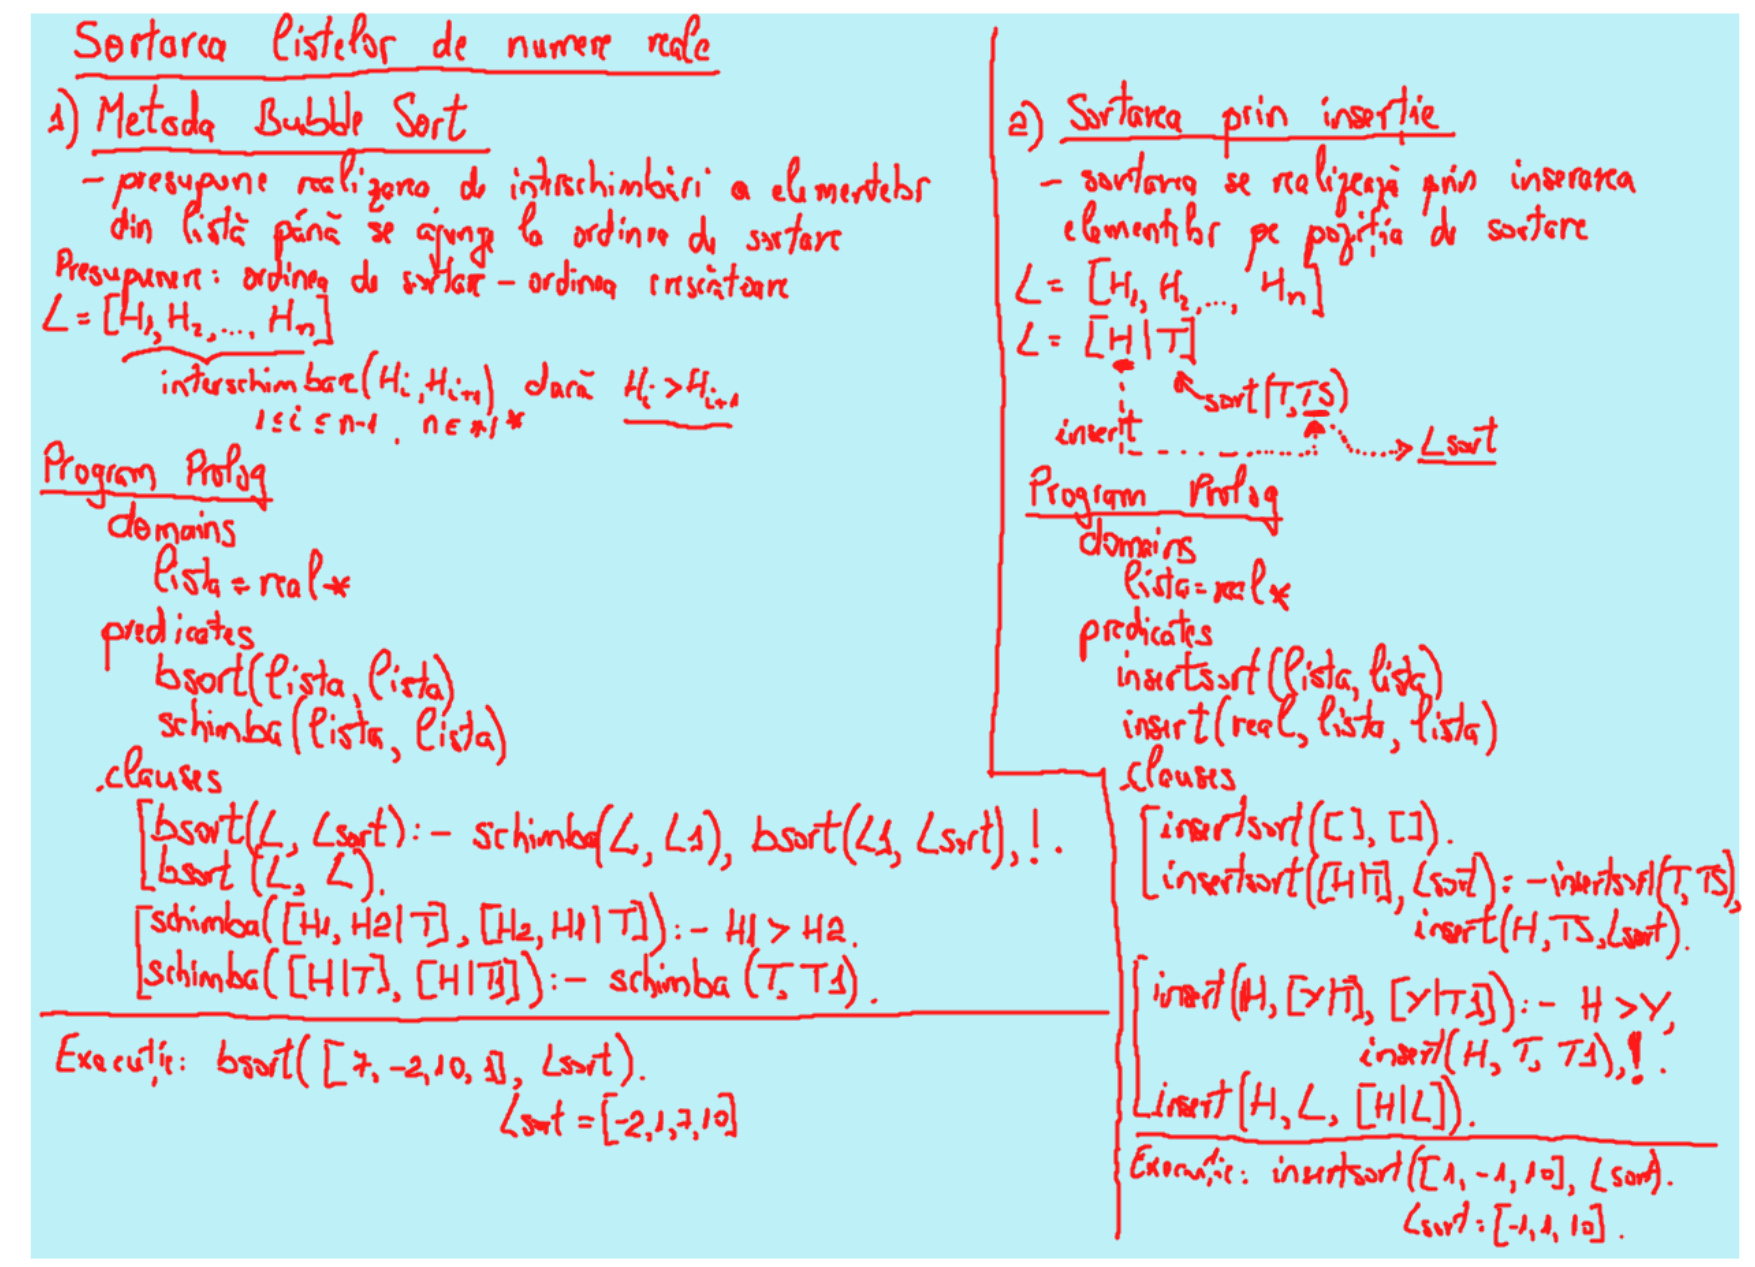 Sortarea listelor de numere reale
1) Metoda Bubble Sort
- presupune realizarea de interschimbări a elementelor
din listă până se ajunge la ordinea de sortare
Presupunere: ordinea de sortare - ordinea crescătoare
L = [H1, H2, ..., Hn]
interschimbare(Hi, Hi+1) dară Hi > Hi+1
1 ≤ i ≤ n-1, n ∈
Program Prolog
domains
lista = real*
predicates
bsort(lista, lista)
schimba(lista, lista)
clauses
bsort(L, Lsort):- schimba(L, L1), bsort(L1, Lsort), !.
bsort(L, L).
schimba([H1, H2|T], [H2, H1|T]):- H1 > H2.
schimba([H|T], [H|T1]):- schimba(T, T1).
Execuție: bsort([7, -2, 10, 1], Lsort).
Lsort = [-2, 1, 7, 10]
2) Sortarea prin insertie
- sortarea se realizează prin inserarea
elementelor pe poziția de sortare
L = [H1, H2, ..., Hn]
L = [H|T]
sort(T, TS)
insert
Lsort
Program Prolog
domains
lista = real*
predicates
insertsort(lista, lista)
insert(real, lista, lista)
clauses
insertsort([], []).
insertsort([H|T], Lsort):- insertsort(T, TS),
insert(H, TS, Lsort).
insert(H, [Y|T], [Y|T1]):- H > Y,
insert(H, T, T1), !.
insert(H, L, [H|L]).
Execuție: insertsort([1, -1, 10], Lsort).
Lsort = [-1, 1, 10].